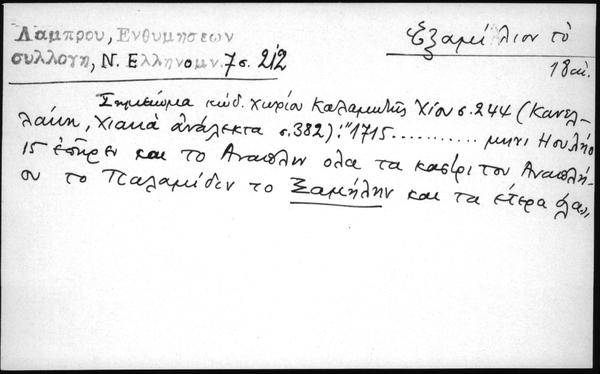 Λάμπρου, Ενθυμήσεων
συλλογη, Ν. Ελληνομν. 7 σ. 212
Εξαμίλιον τὸ
18 αἰ.
Σημείωμα κώδ. χωρίου Καλαμωτῆς Χίου σ. 244 (Κανελ-
λάκη, Χιακὰ ἀνάλεκτα σ. 382): "1715 .......... μηνι Ηουλήο
15 ἐπῆρεν και το Αναπλην ολα τα κασίρι του Αναπλή-
ου το Παλαμίδεν το Ξαμήλην και τα ετερα ὁλα„